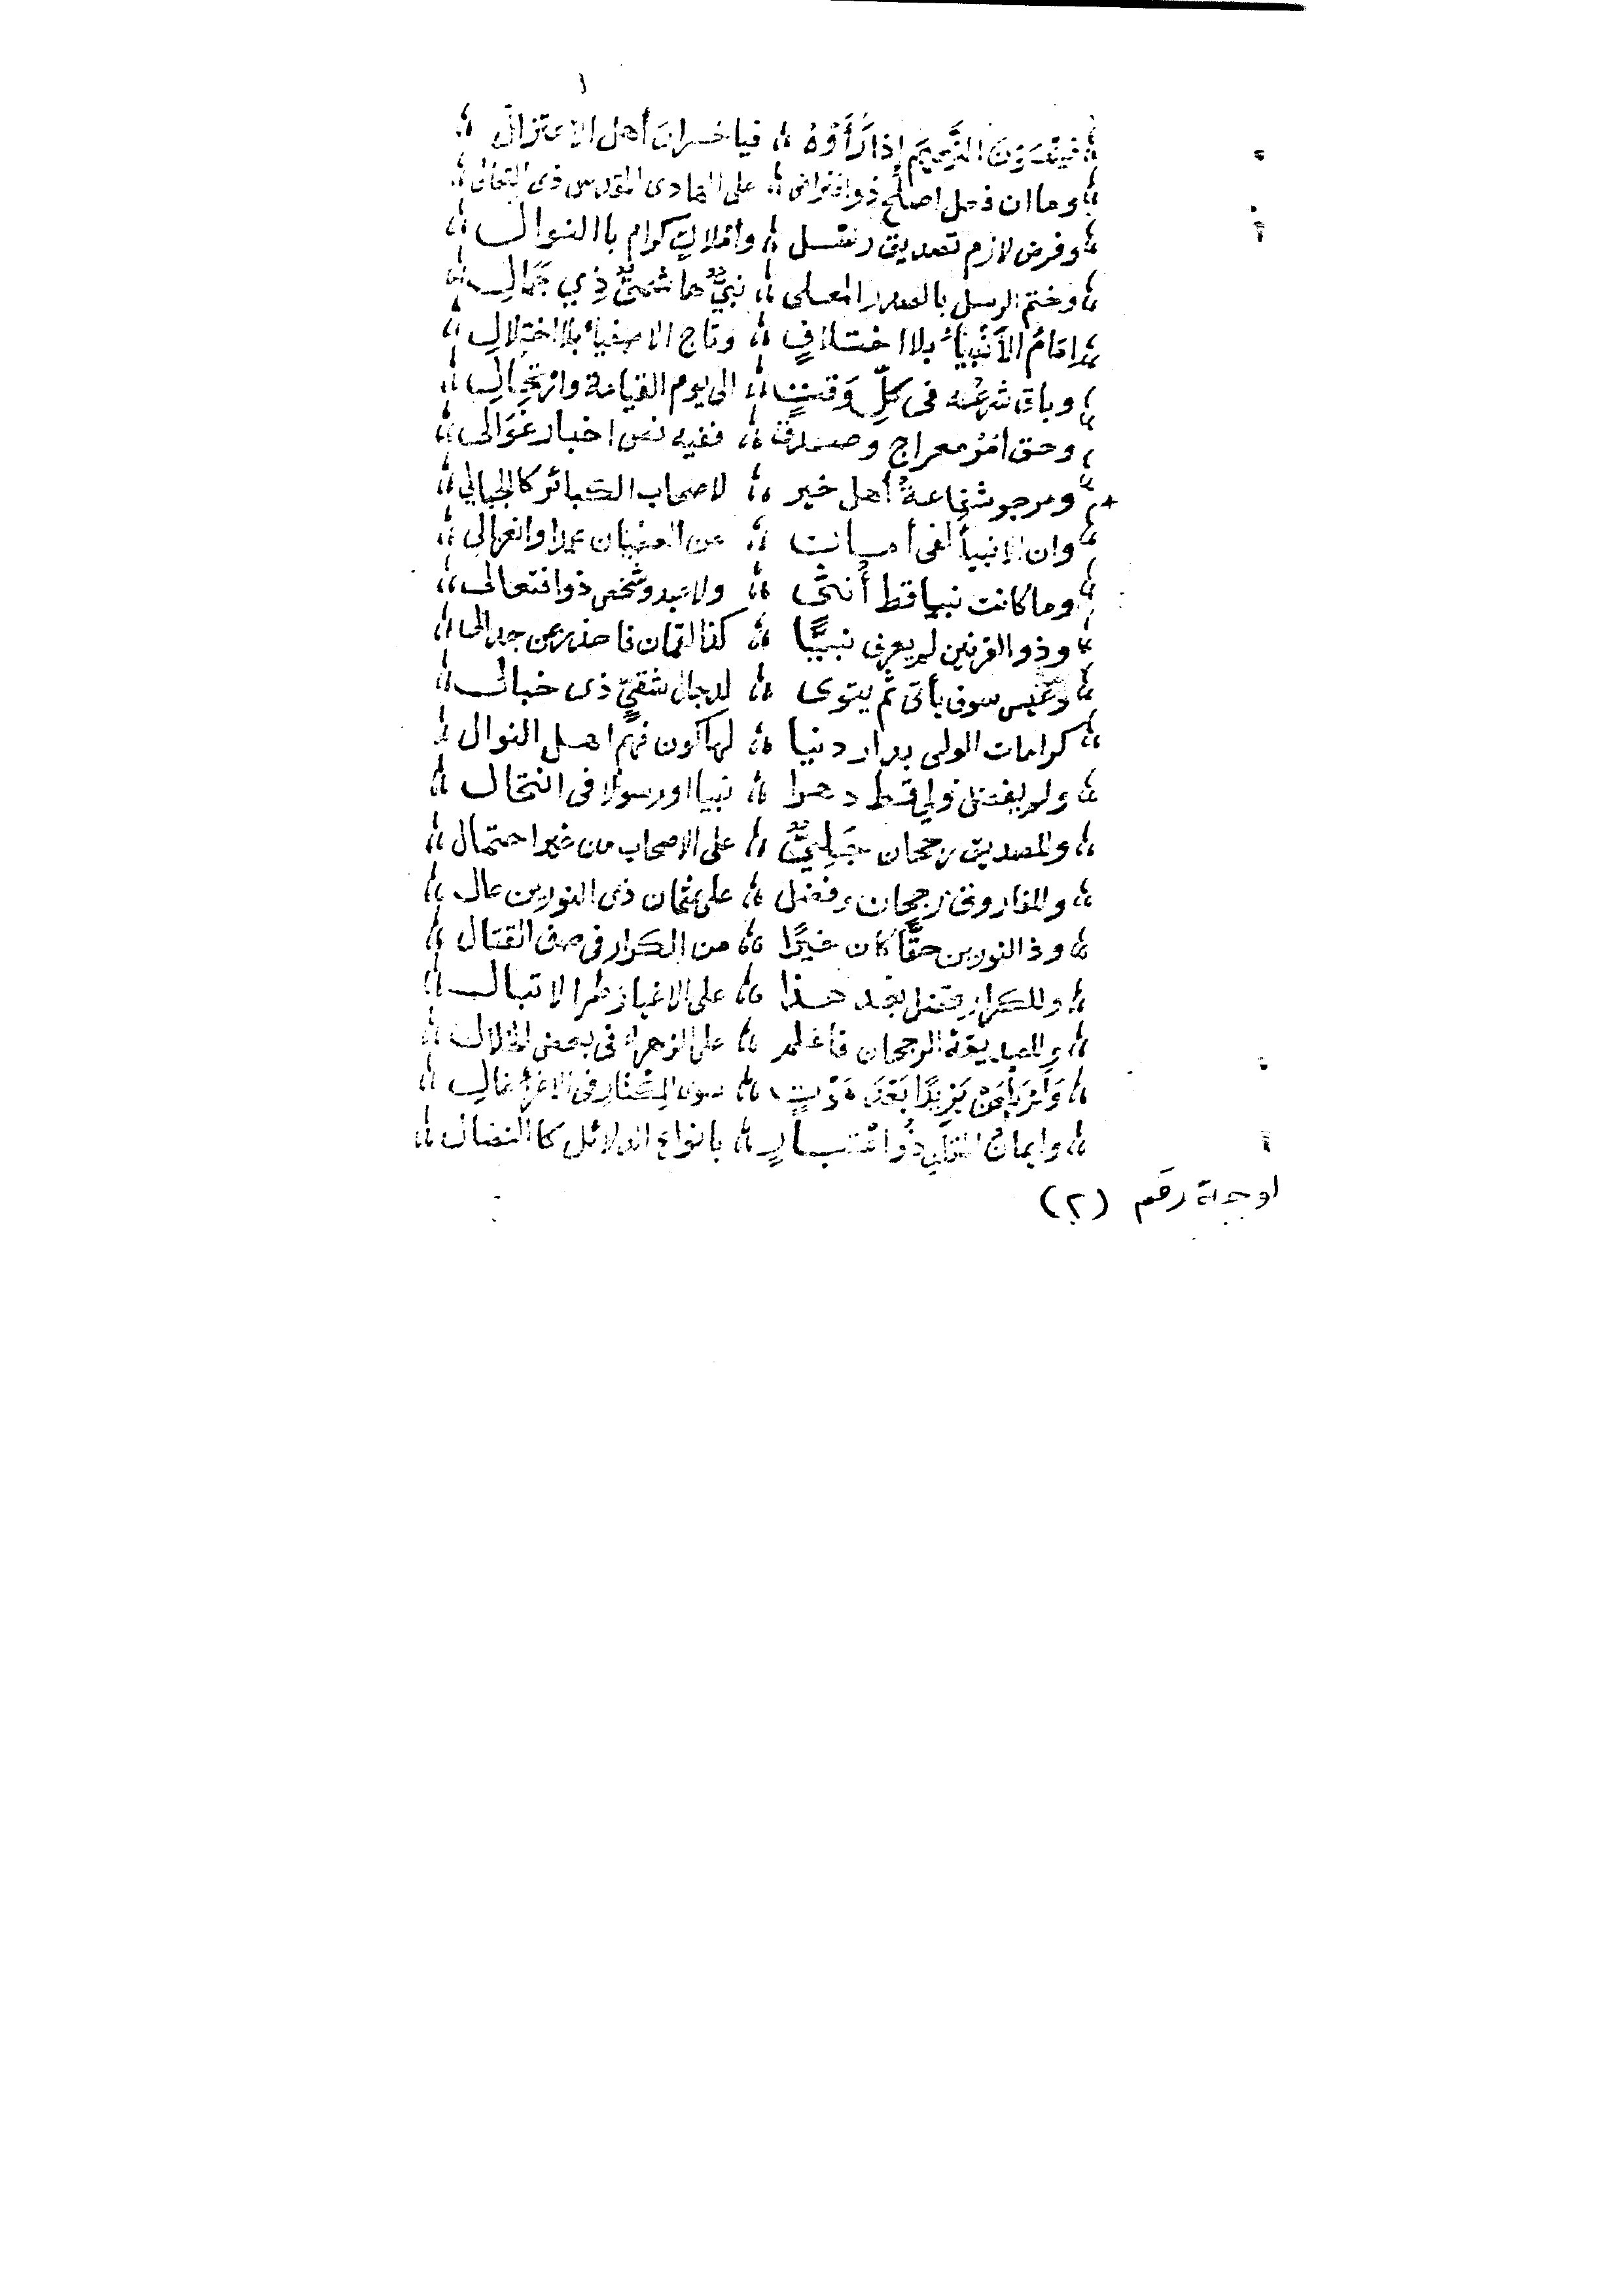 فينسون النَّعِيمَ إذا رَأَوْهُ ؛ فيا خسران أهل الاعتزال
وما ان فعل اصلح ذوافتراض ؛ على الهادى المقدس ذى التعالى
وفرض لازم تصديق رسل ؛ واملاكٍ كرام باالنوال
وختم الرسل بالصدر المعلى ؛ نبيٌّ هاشميٌّ ذِي جَمَالِ
امامُ الأَنْبِيَاءُ بلا اختلافٍ ؛ وتاج الاصفياء بلا اختِلالِ
وباق شرعُه فى كلِّ وَقتٍ ؛ الى يوم القيامة وارتحِالِ
وحق امْرُ معراج وصدق ؛ ففيه نص اخبار عَوَالى
ومرجو شفاعةُ أهل خير ؛ لاصحاب الكبائر كالجبالِ
وان الانبيأ لفى أمانت ؛ عن العصيان عمدا وانعزالى
وما كانت نبيا قط أُنثى ؛ ولا عبد وشخص ذوافتعالى
وذو القرنين لم يعرف نبيًّا ؛ كذا لقمان فاحذر عن جدالى
وعيسى سوف يأتى ثم يتوى ؛ لدجال شقيٍّ ذى خبال
كرامات الولى بدار دنيا ؛ لها كون فهم اهل النوال
ولم يفضل ولي قط دهرا ؛ نبيا اورسولا فى انتحال
وللصديق رجحان جَلِيٌّ ؛ على الاصحاب من غير احتمال
وللفاروق رجحان وفضل ؛ على عثمان ذى النورين عال
وذ النورين حقًّا كان خيرًا ؛ من الكرار فى صف القتال
وللكرار فضل بعد هذا ؛ على الاغيار طرا لا تبال
وللصديقة الرجحان فاعلم ؛ على الزهراء فى بعض الخلال
وَلَمْ يَلْعَنْ يَزِيدًا بَعْدَ مَوْتٍ ؛ سوى المكثار فى الاغراء غالِ
وايمانُ المقلد ذُو اعتبارٍ ؛ بانواع الدلائل كا النصال
لوحة رقم (٢)